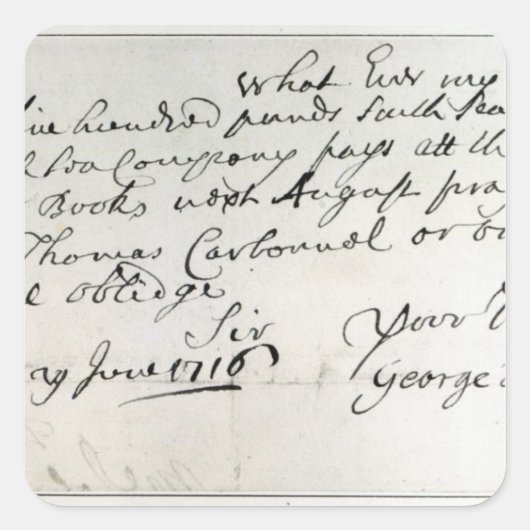 What Ever my
ive hundred pounds South Sea
Sea Company pays att th
Books next August pra
Thomas Carbonnel or
e oblidge
Sir
Yoor
29 June 1716
George